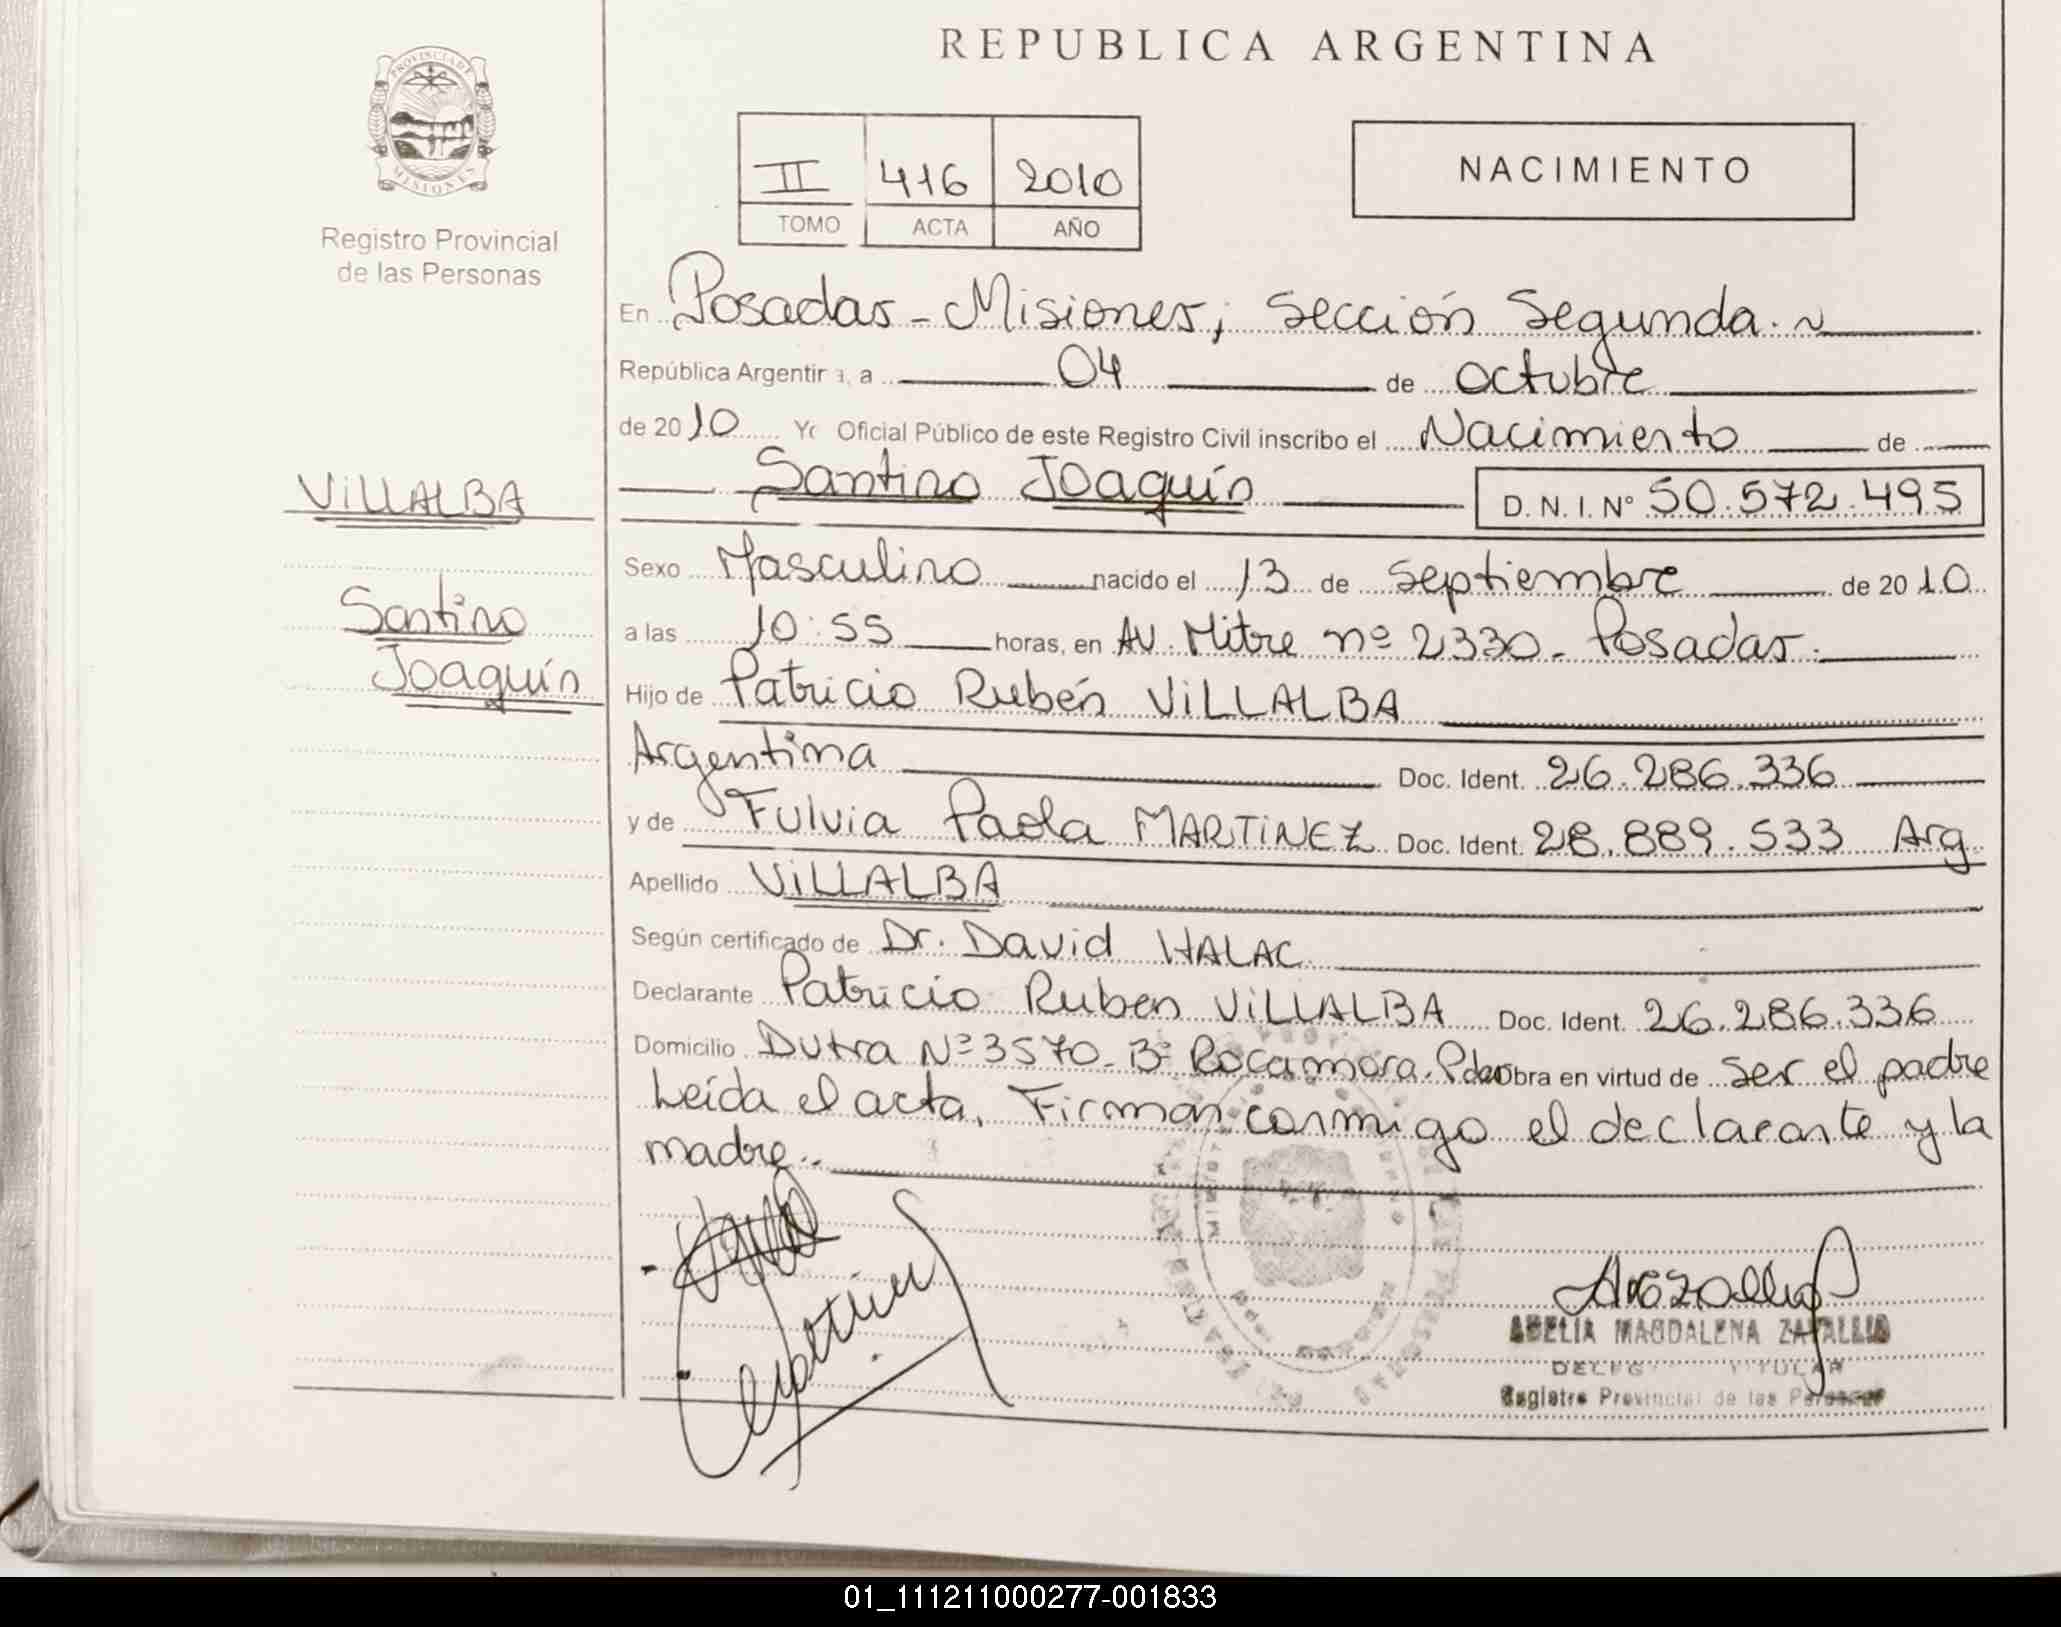 PROVINCIA DE
MISIONES
Registro Provincial
de las Personas
VILLALBA
Santino
Joaquín
REPUBLICA ARGENTINA
II 416 2010
TOMO ACTA AÑO
NACIMIENTO
En Posadas - Misiones; Sección Segunda.
República Argentina, a 04 de octubre
de 2010 Yo Oficial Público de este Registro Civil inscribo el Nacimiento de
Santino Joaquín D. N. I. N° 50.572.495
Sexo Masculino nacido el 13 de Septiembre de 2010
a las 10:55 horas, en AV. Mitre nº 2330 - Posadas.
Hijo de Patricio Rubén VILLALBA
Argentina Doc. Ident. 26.286.336
y de Fulvia Paola MARTINEZ Doc. Ident. 28.889.533 Arg
Apellido VILLALBA
Según certificado de Dr. David HALAC
Declarante Patricio Ruben VILLALBA Doc. Ident. 26.286.336
Domicilio Dutra Nº 3570 - Bº Rocamora. Pdas Obra en virtud de ser el padre
Leída el acta, Firman conmigo el declarante y la
madre..
MAGDALENA
Registro Provincial de las Personas
01_111211000277-001833